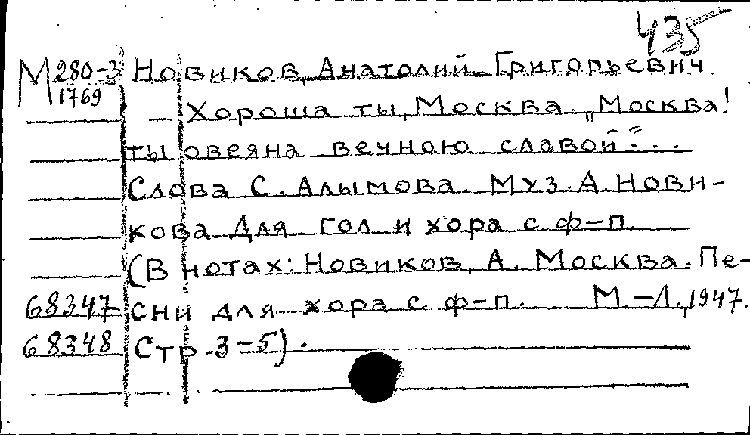 435
М 280-3 Новиков, Анатолий Григорьевич
1769
Хороша ты, Москва. „Москва!
ты овеяна вечною славой"...
Слова С. Алымова. Муз. А. Нови-
кова. Для гол. и хора с ф-п.
(В нотах: Новиков, А. Москва. Пе-
68347 сни для хора с ф-п. М.-Л., 1947.
68348 Стр. 3-5).